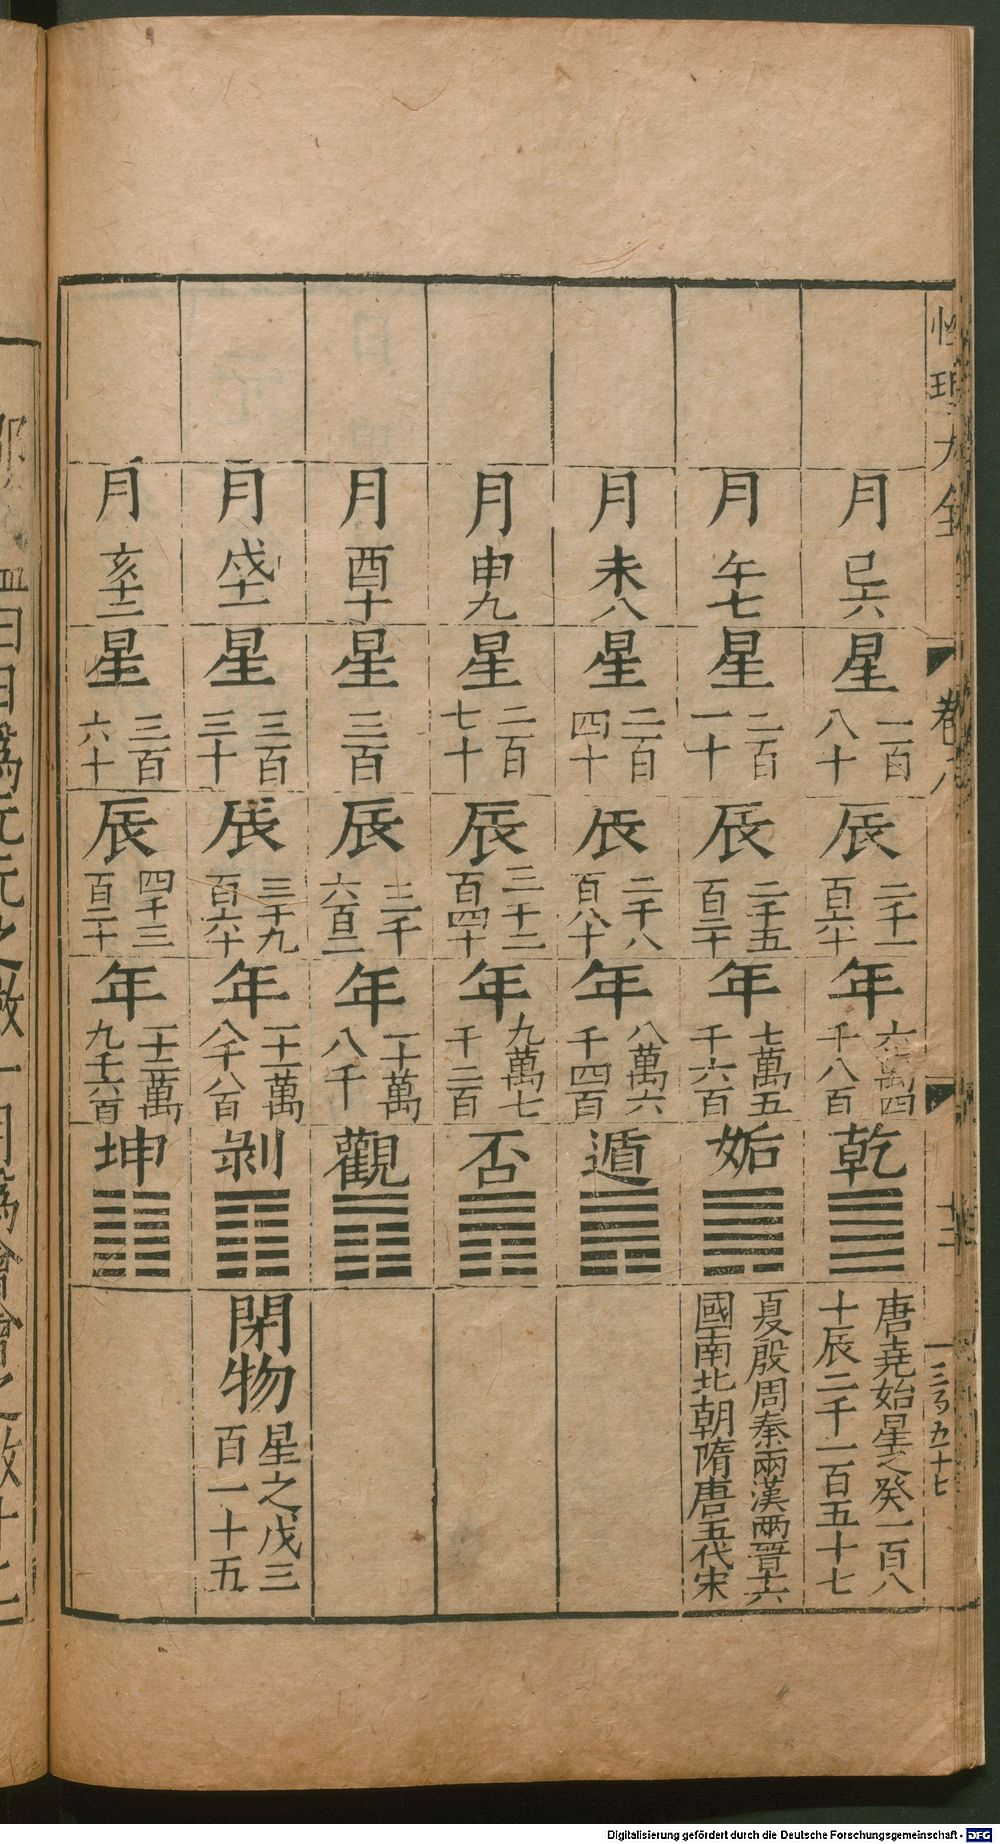 性理大全 卷八 十二
一三〥五十七
月巳六 星一百八十 辰二千一百六十 年六萬四千八百 乾 唐堯始星之癸一百八十辰二千一百五十七
月午七 星二百一十 辰二千五百二十 年七萬五千六百 姤 夏殷周秦兩漢兩晉十六國南北朝隋唐五代宋
月未八 星二百四十 辰二千八百八十 年八萬六千四百 遁
月申九 星二百七十 辰三千二百四十 年九萬七千二百 否
月酉十 星三百 辰三千六百 年一十萬八千 觀
月戌十一 星三百三十 辰三千九百六十 年一十一萬八千八百 剝 閉物 星之戊三百一十五
月亥十二 星三百六十 辰四千三百二十 年一十二萬九千六百 坤
曰日爲元元之數一月爲會會之數十二
Digitalisierung gefördert durch die Deutsche Forschungsgemeinschaft - DFG